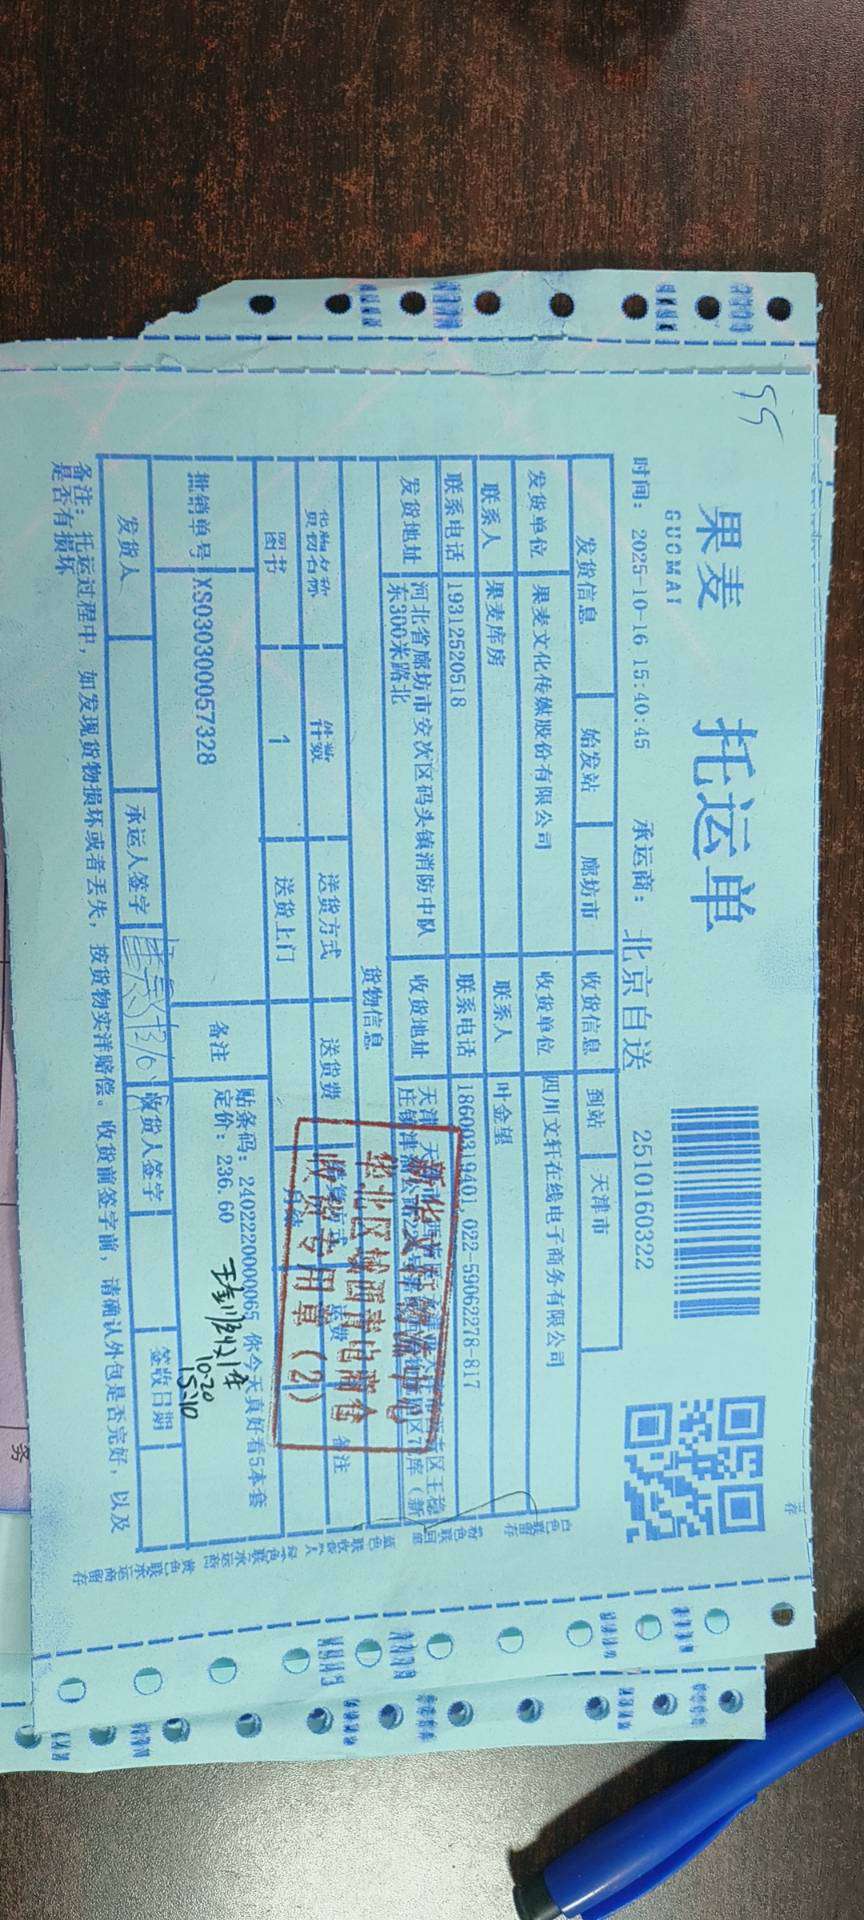 55
果麦
GUOMAI
托运单
时间: 2025-10-16 15:40:45 承运商: 北京自送 2510160322
发货信息 始发站 廊坊市 收货信息 到站 天津市
发货单位 果麦文化传媒股份有限公司 收货单位 四川文轩在线电子商务有限公司
联系人 果麦库房 联系人 叶金望
联系电话 19312520518 联系电话 18600319401,022-59062278-817
发货地址 河北省廊坊市安次区码头镇消防中队东300米路北 收货地址 天津
货物信息
货物名称 件数 送货方式 送货费 运费 备注
图书 1 送货上门
批销单号 XS030300057328 备注 贴条码: 240222000065 你今天真好看5本套
定价: 236.60
10-20
15:10
发货人 承运人签字 收货人签字 签收日期
备注: 托运过程中, 如发现货物损坏或者丢失, 按货物实洋赔偿。收货前签字前, 请确认外包是否完好, 以及
是否有损坏
新华文轩物流中心
收货专用章(2)